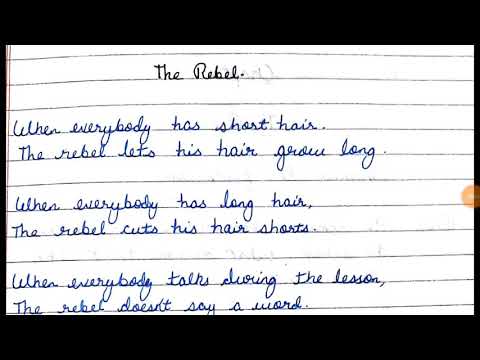 The Rebel.
When everybody has short hair.
The rebel lets his hair grow long.
When everybody has long hair,
The rebel cuts his hair shorts.
When everybody talks during the lesson,
The rebel doesn't say a word.